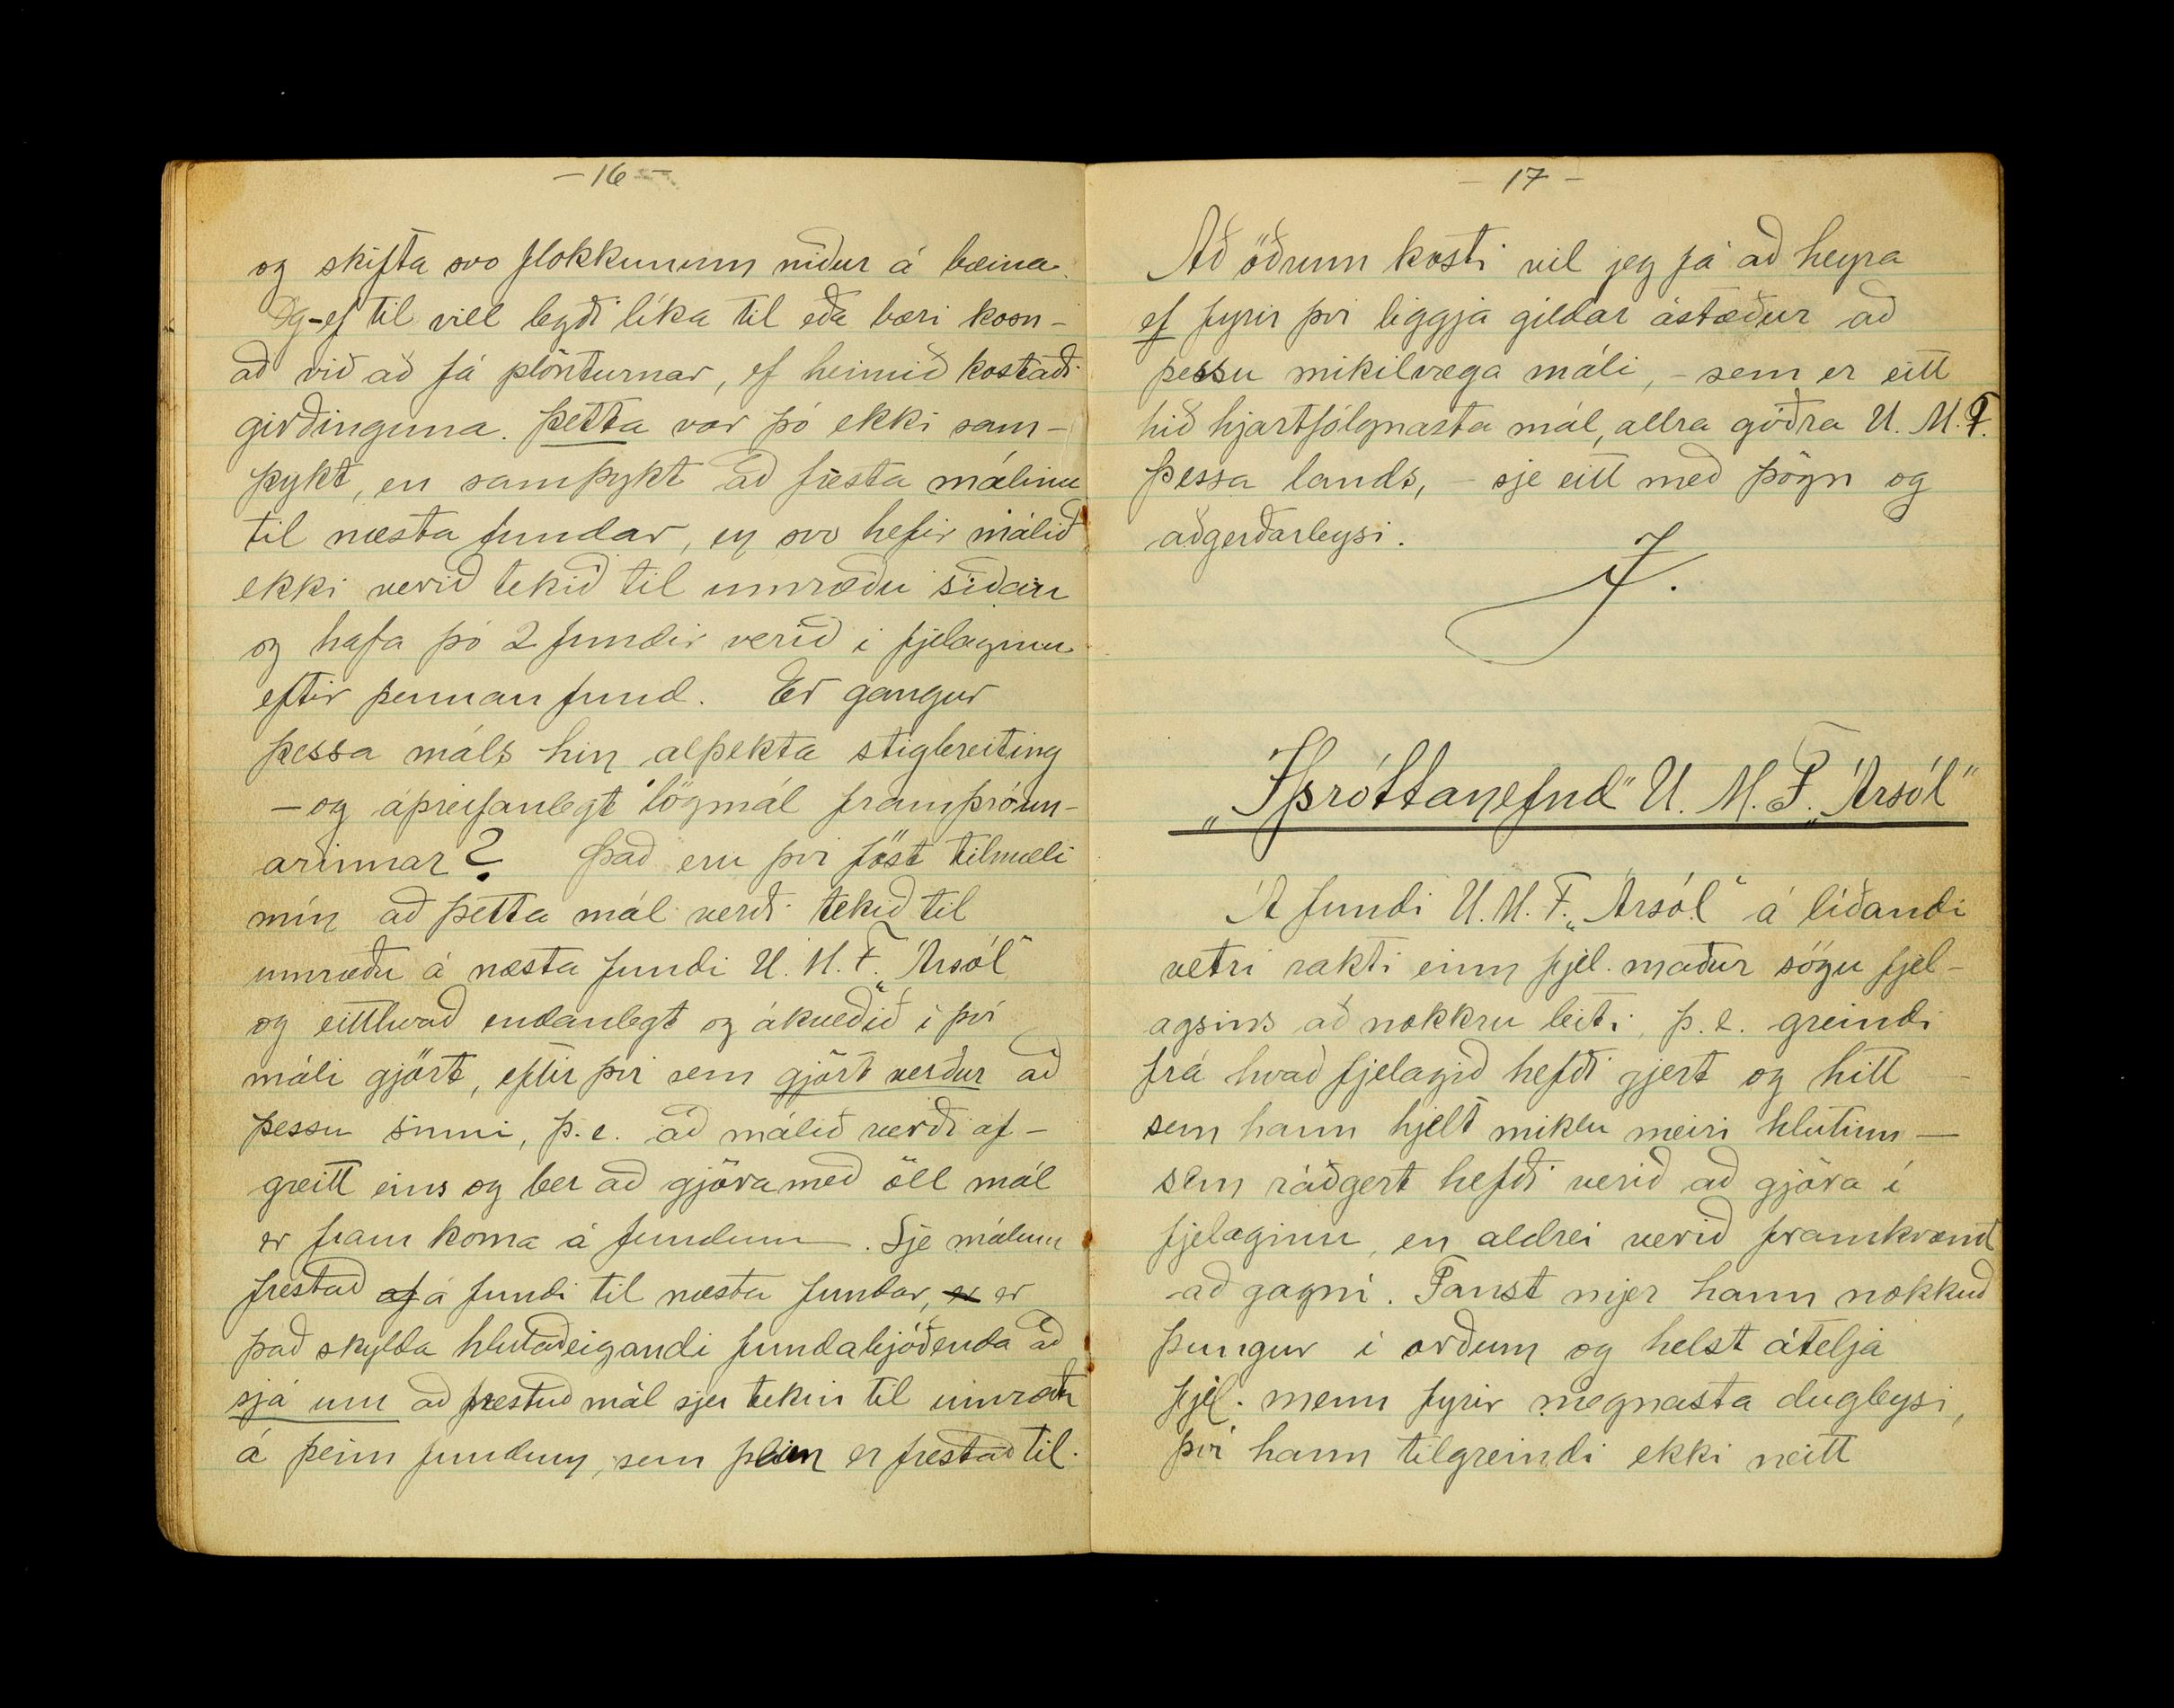 - 16 -
og skifta svo flokkunum niður á bæina.
Og - ef til vill legði líka til eða væri kosn-
að við að fá plönturnar, ef heimið kostaði
girðinguna. Þetta var þó ekki sam-
þykt, en samþykt að fresta málinu
til næsta fundar, en svo hefir málið
ekki verið tekið til umræðu síðan
og hafa þó 2 fundir verið í fjelaginu
eftir þennan fund. Er gangur
þessa máls hin alþekta stigbreiting
- og áþreifanlegt lögmál framþróun-
arinnar? Það eru því föst tilmæli
mín að þetta mál verði tekið til
umræðu á næsta fundi U. M. F. "Ársól"
og eitthvað endanlegt og ákveðið í því
máli gjört, eftir því sem gjört verður að
þessu sinni, þ. e. að málið verði af-
greitt eins og ber að gjöra með öll mál
er fram koma á fundum. Sje málum
frestað af á fundi til næsta fundar, er er
það skylda hlutaðeigandi fundabjóðenda að
sjá um að frestuð mál sjeu tekin til umræðu
á þeim fundum, sem þeim er frestað til.
- 17 -
Að öðrum kosti vil jeg fá að heyra
ef fyrir því liggja gildar ástæður að
þessu mikilvæga máli, - sem er eitt
hið hjartfólgnasta mál, allra góðra U. M. F.
þessa lands, - sje eitt með þögn og
aðgerðarleysi.
J.
„Íþróttanefnd" U. M. F. „Ársól"
Á fundi U. M. F. „Ársól" á líðandi
vetri rakti einn fjel. maður sögu fjel-
agsins að nokkru leiti, þ. e. greindi
frá hvað fjelagið hefði gjert og hitt -
sem hann hjelt miklu meiri hlutinn -
sem ráðgert hefði verið að gjöra í
fjelaginu, en aldrei verið framkvæmt
að gagni. Fanst mjer hann nokkuð
þungur í orðum og helst átelja
fjel. menn fyrir megnasta dugleysi,
því hann tilgreindi ekki neitt